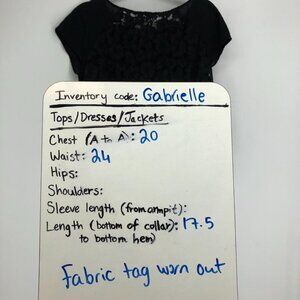 Inventory code: Gabrielle
Tops/Dresses/Jackets
Chest (A to A): 20
Waist: 24
Hips:
Shoulders:
Sleeve length (from armpit):
Length (bottom of collar): 17.5
to bottom hem)
Fabric tag worn out